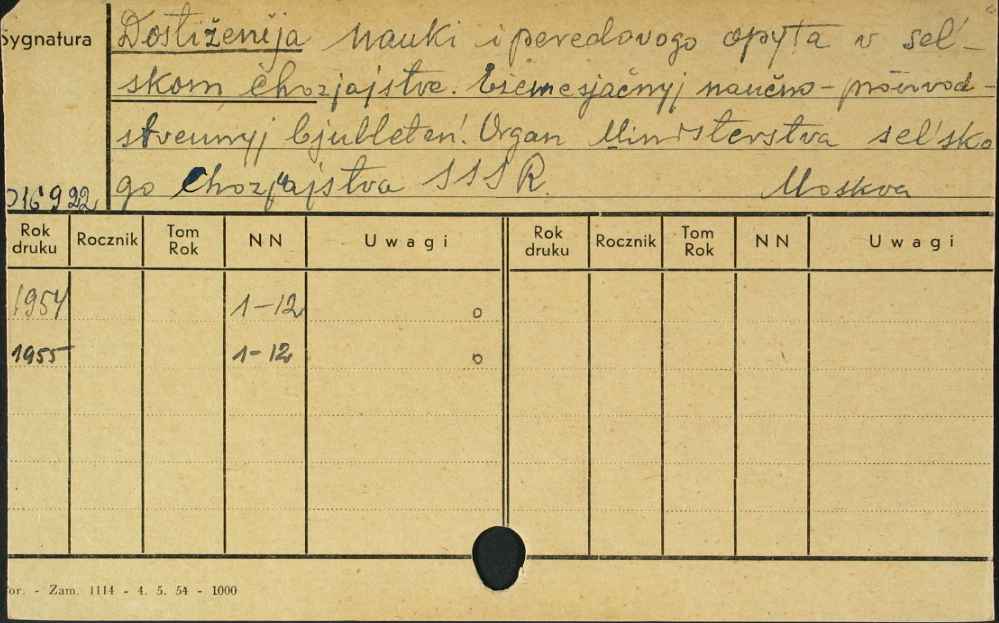 Sygnatura
Dostiženija nauki i peredovogo opyta v sel'-
skom chozjajstve. Ežemesjačnyj naučno-proizvod-
stvennyj bjulleten'. Organ Ministerstva sel'sko
go chozjajstva SSSR. Moskva
016922
Rok druku Rocznik Tom Rok NN Uwagi Rok druku Rocznik Tom Rok NN Uwagi
1954 1-12 o
1955 1-12 o
or. - Zam. 1114 - 4. 5. 54 - 1000